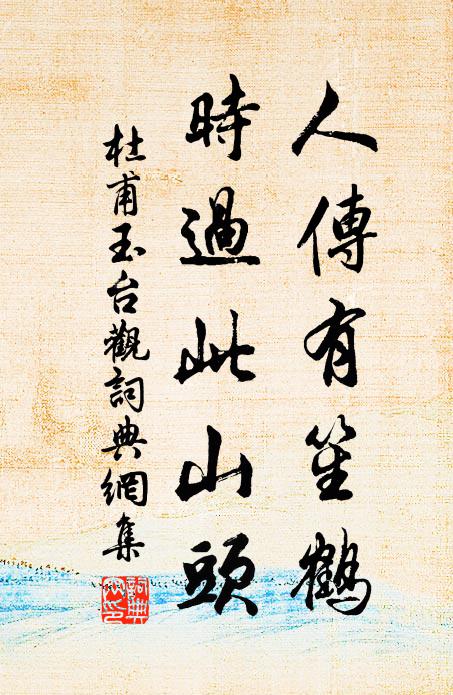 人傳有笙鶴
時過此山頭
杜甫玉台觀詞典網集